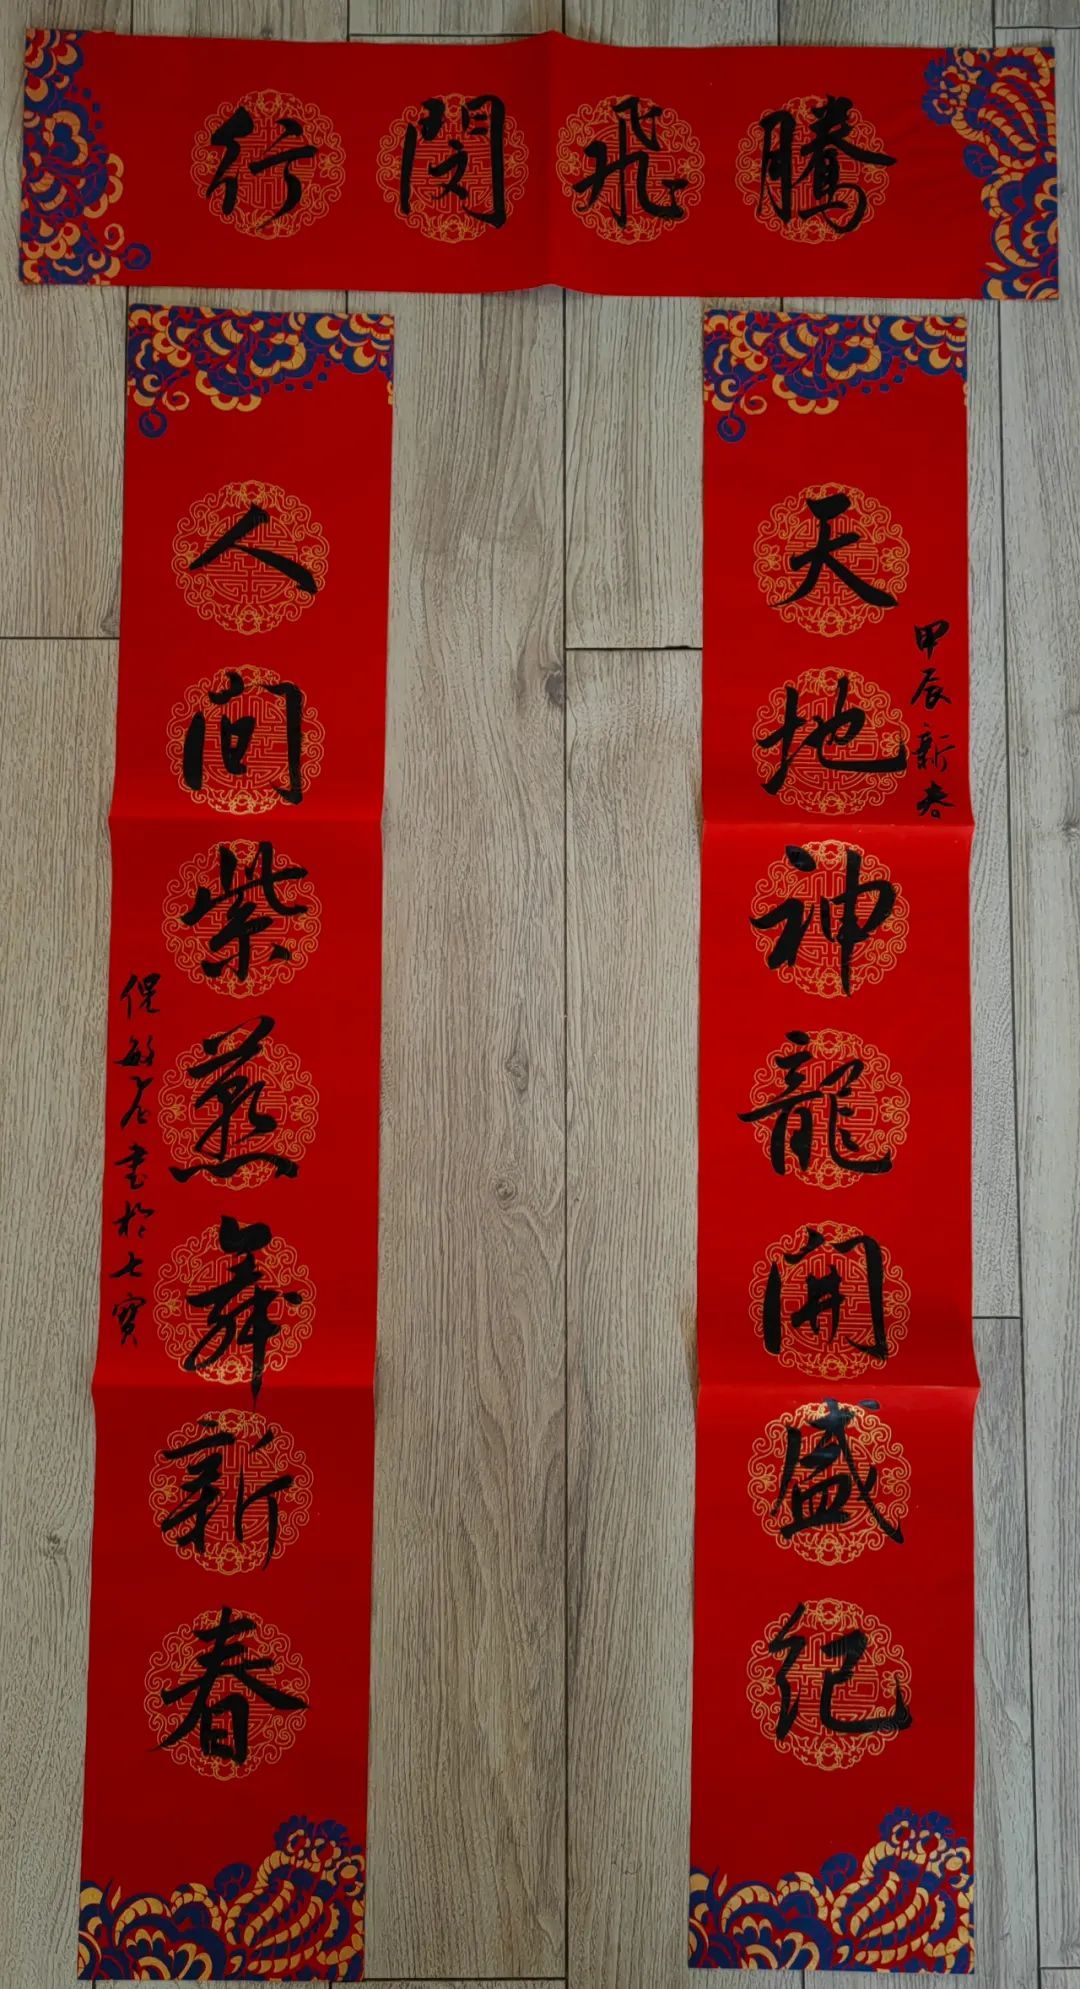 騰飛閔行
天地神龍開盛紀
甲辰新春
人間紫燕舞新春
倪敏書於七寶